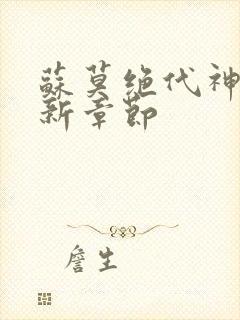 蘇莫绝代神
新章節
詹生